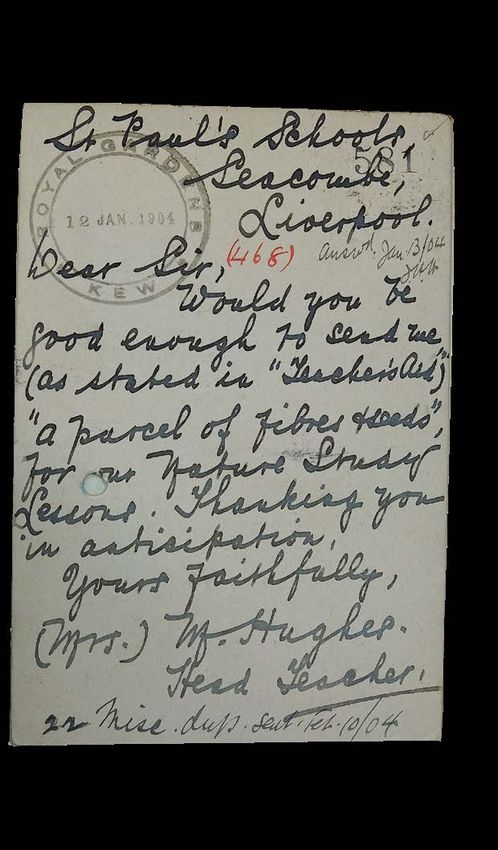 St Paul's Schools,
581
Seacombe,
Liverpool.
ROYAL GARDENS
12 JAN. 1904
KEW
(468)
Answd. Jan. 13/04
Dear Sir,
Would you be
good enough to send me,
(as stated in "Teacher's Aid")
"a parcel of fibres & seeds",
for our Nature Study
Lessons. Thanking you
in anticipation,
Yours faithfully,
(Mrs.) M. Hughes.
Head Teacher.
22 Misc. dup. sent. Feb. 10/04